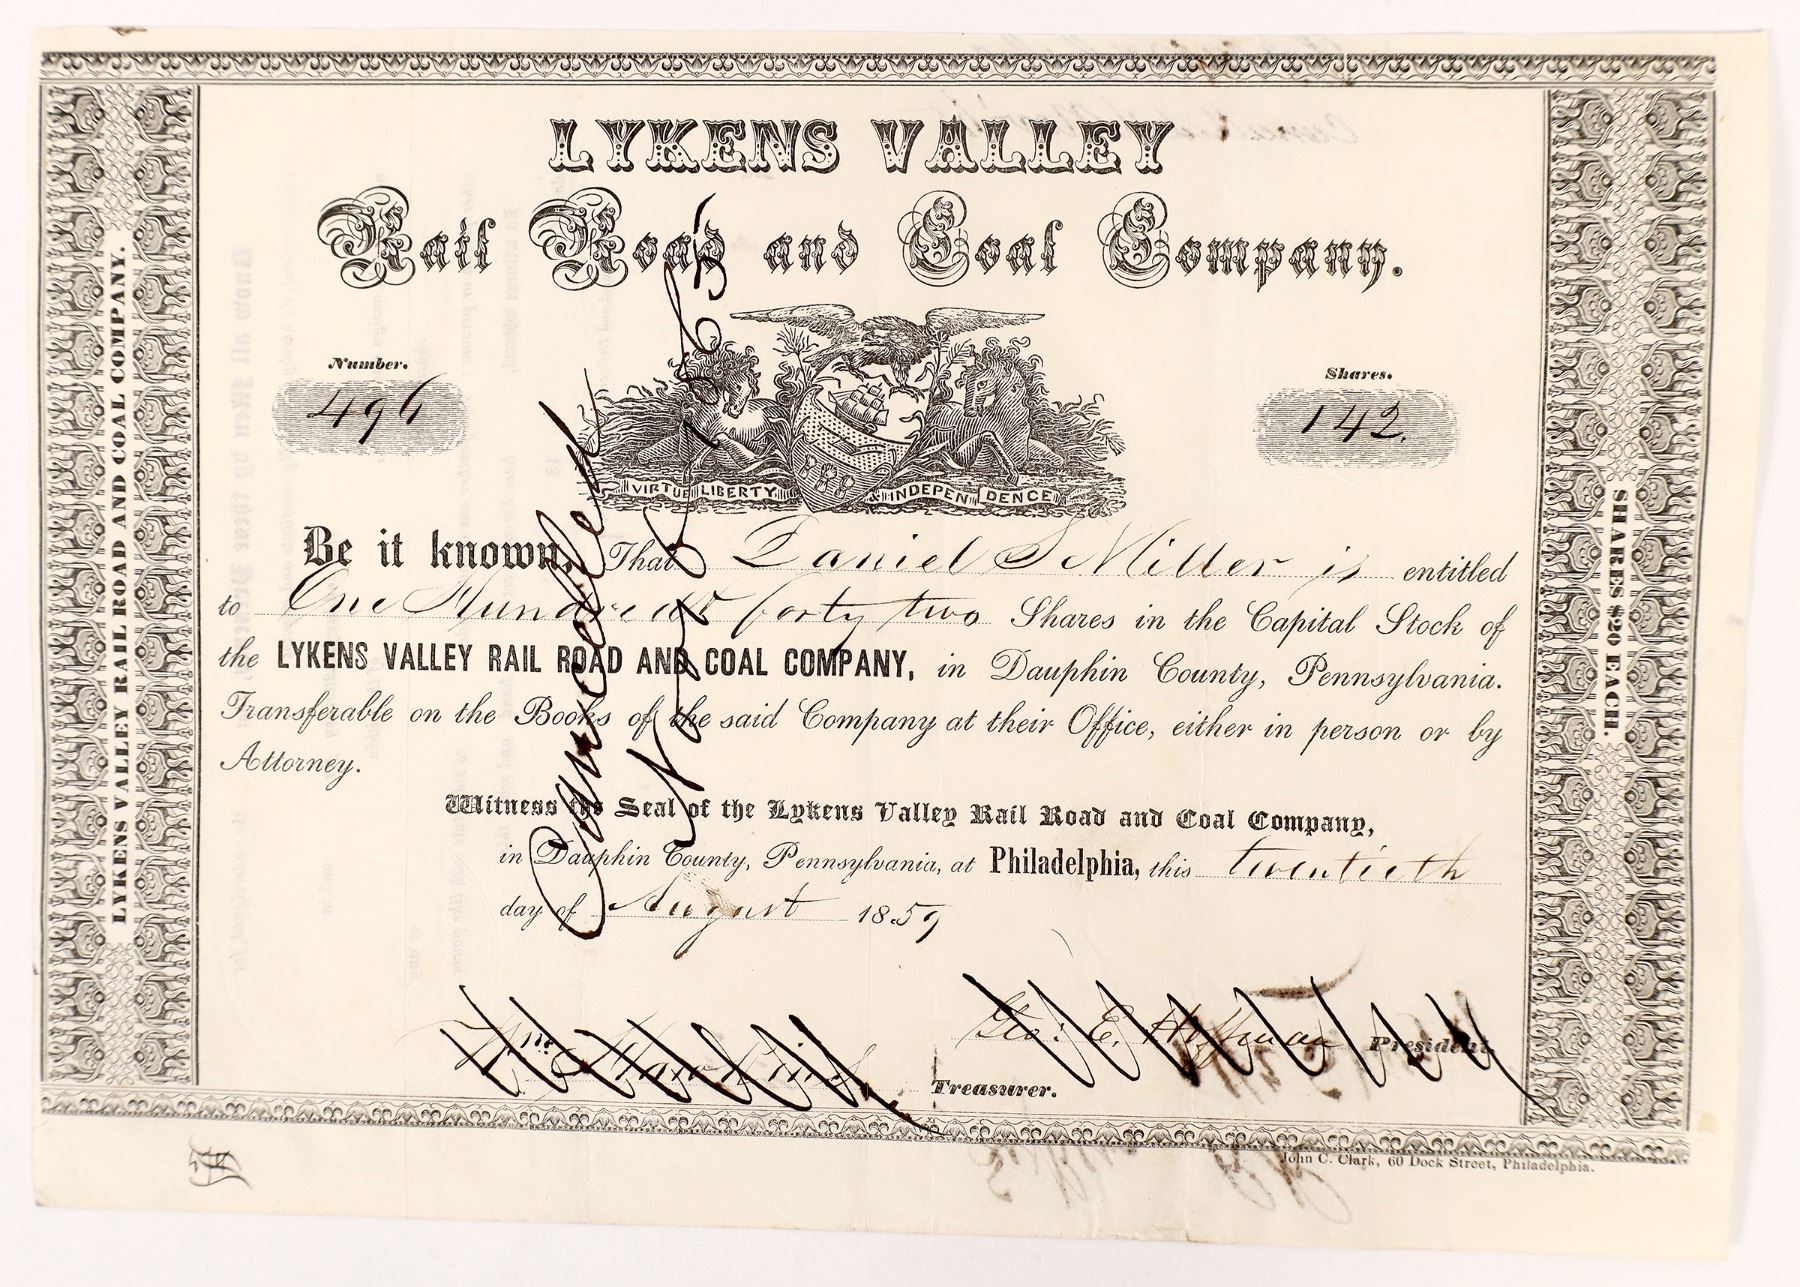 LYKENS VALLEY
Rail Road and Coal Company.
Number.
496
Shares.
142.
VIRTUE LIBERTY & INDEPENDENCE
Be it known, That Daniel S Miller is entitled
to One Hundred & forty two Shares in the Capital Stock of
the LYKENS VALLEY RAIL ROAD AND COAL COMPANY, in Dauphin County, Pennsylvania.
Transferable on the Books of the said Company at their Office, either in person or by
Attorney.
Witness the Seal of the Lykens Valley Rail Road and Coal Company,
in Dauphin County, Pennsylvania, at Philadelphia, this twentieth
day of August 1859
Geo: E. Hoffman President
Wm Hawkins Treasurer.
John C. Clark, 60 Dock Street, Philadelphia.
LYKENS VALLEY RAIL ROAD AND COAL COMPANY.
SHARES $20 EACH.
Cancelled
1865